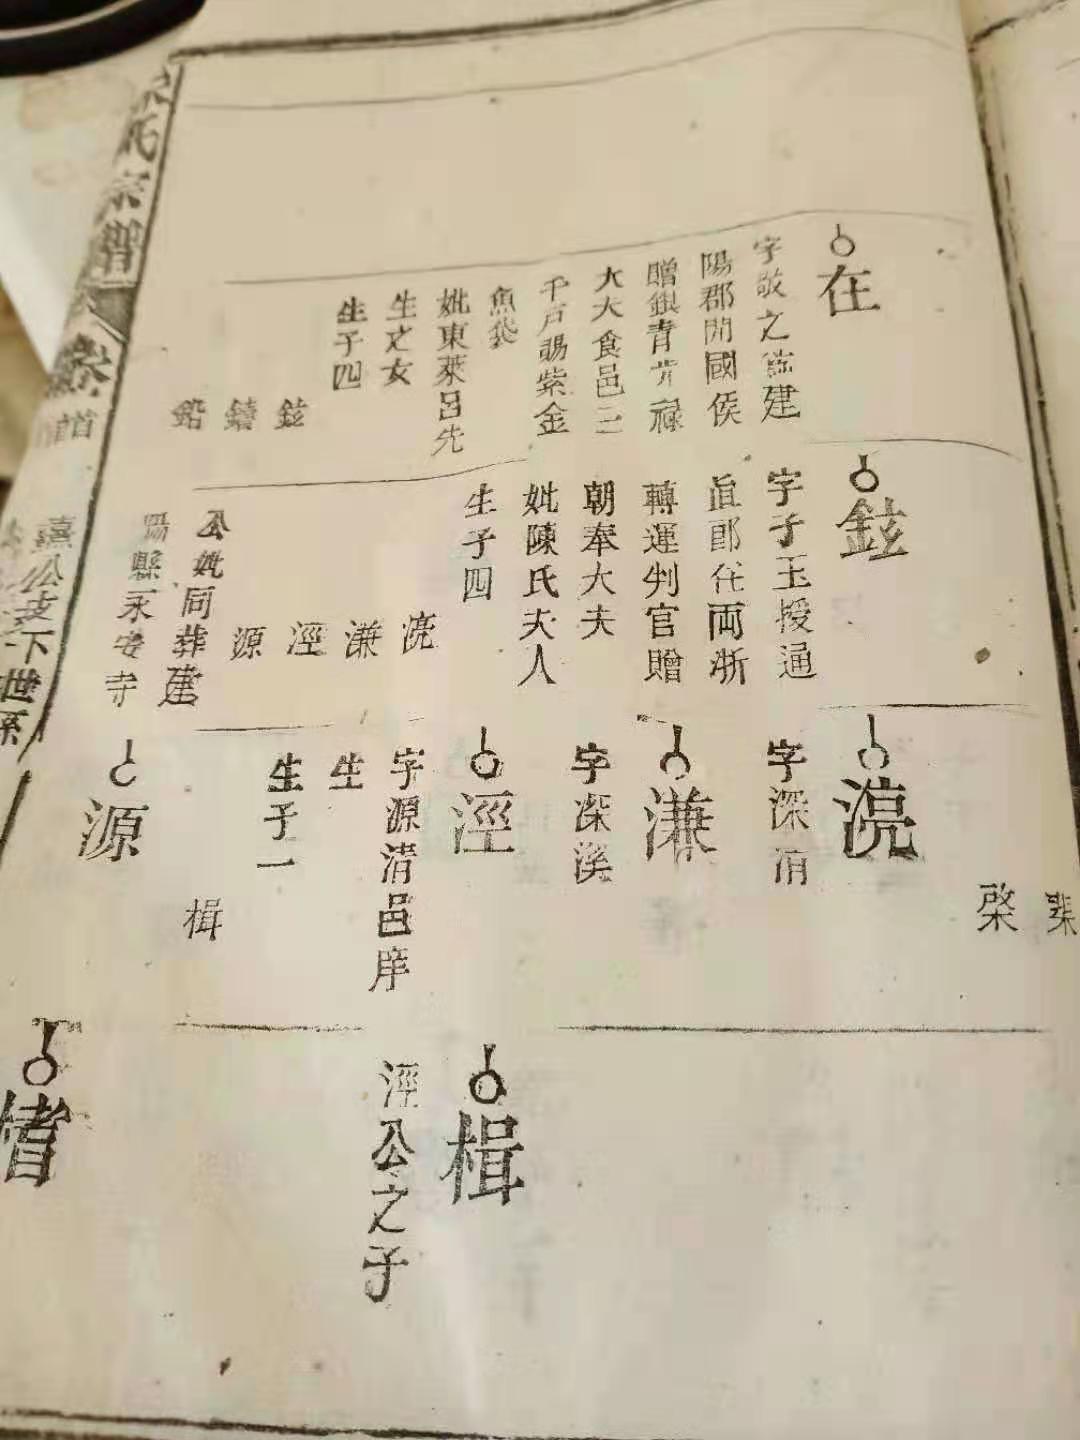 棐
棨
在
字敬之
建
陽郡開國侯
贈銀青
祿
大夫食邑三
千戶賜紫金
魚袋
妣東萊呂先
生之女
生子四
鉉
鐼
鉛
鉉
字子玉授通
直郎任両浙
轉運判官贈
朝奉大夫
妣陳氏夫人
生子四
濂
涇
源
公妣同葬建
陽縣永安寺
字深
濂
字深溪
涇
字源清邑庠
生
生子一
楫
源
楫
涇公之子
氏宗譜
卷首
公支下世系